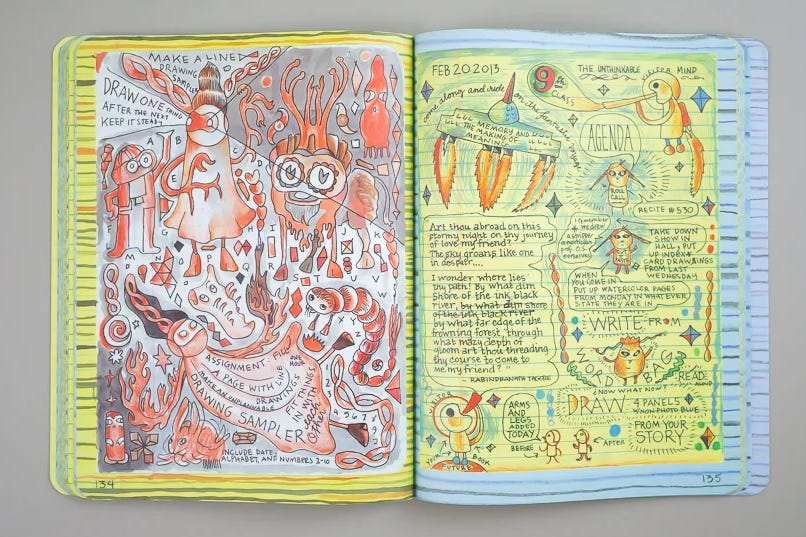 MAKE A LINED
DRAWING
SAMPLER
DRAW ONE THING
AFTER THE NEXT
KEEP IT STEADY
A
B
D
E
G
H
M
Q
R
T
W
Y
Z
ASSIGNMENT: FILL
1 PAGE WITH LINE
ONE
HOUR
DRAWINGS
MAKE AN UNPLANNABLE
FIT THINGS
IN WITH
each
other
DRAWING SAMPLER
INCLUDE DATE,
ALPHABET, AND NUMBERS 1-10
134
FEB 20 2013
9th
CLASS
THE UNTHINKABLE MIND
VISITOR
come along and ride on the fantastic voyage
MEMORY AND
THE MAKING OF
MEANING
AGENDA
ROLL
CALL
RECITE #530
Art thou abroad on this
stormy night on thy journey
of love my friend?
The sky groans like one
in despair....
I wonder where lies
thy path! By what dim
shore of the ink black
river, by what dim shore
of the ink black river
by what far edge of the
frowning forest, through
what mazy depth of
gloom art thou threading
thy course to come to
me my friend?"
- RABINDRANATH TAGORE
TAKE DOWN
SHOW IN
HALL, PUT
UP INDEX
CARD DRAWINGS
FROM LAST
WEDNESDAY
WHEN
YOU COME IN
PUT UP WATERCOLOR PAGES
FROM MONDAY IN WHATEVER
STATE THEY ARE IN
WRITE FROM
WORD BAG
READ
ALOUD
NOW WHAT NOW
DRAW 4 PANELS
W/NON PHOTO BLUE
FROM YOUR
STORY
VISITOR
ARMS
AND
LEGS
ADDED
TODAY
BEFORE
AFTER
YOUR
BOOK
FUTURE
135